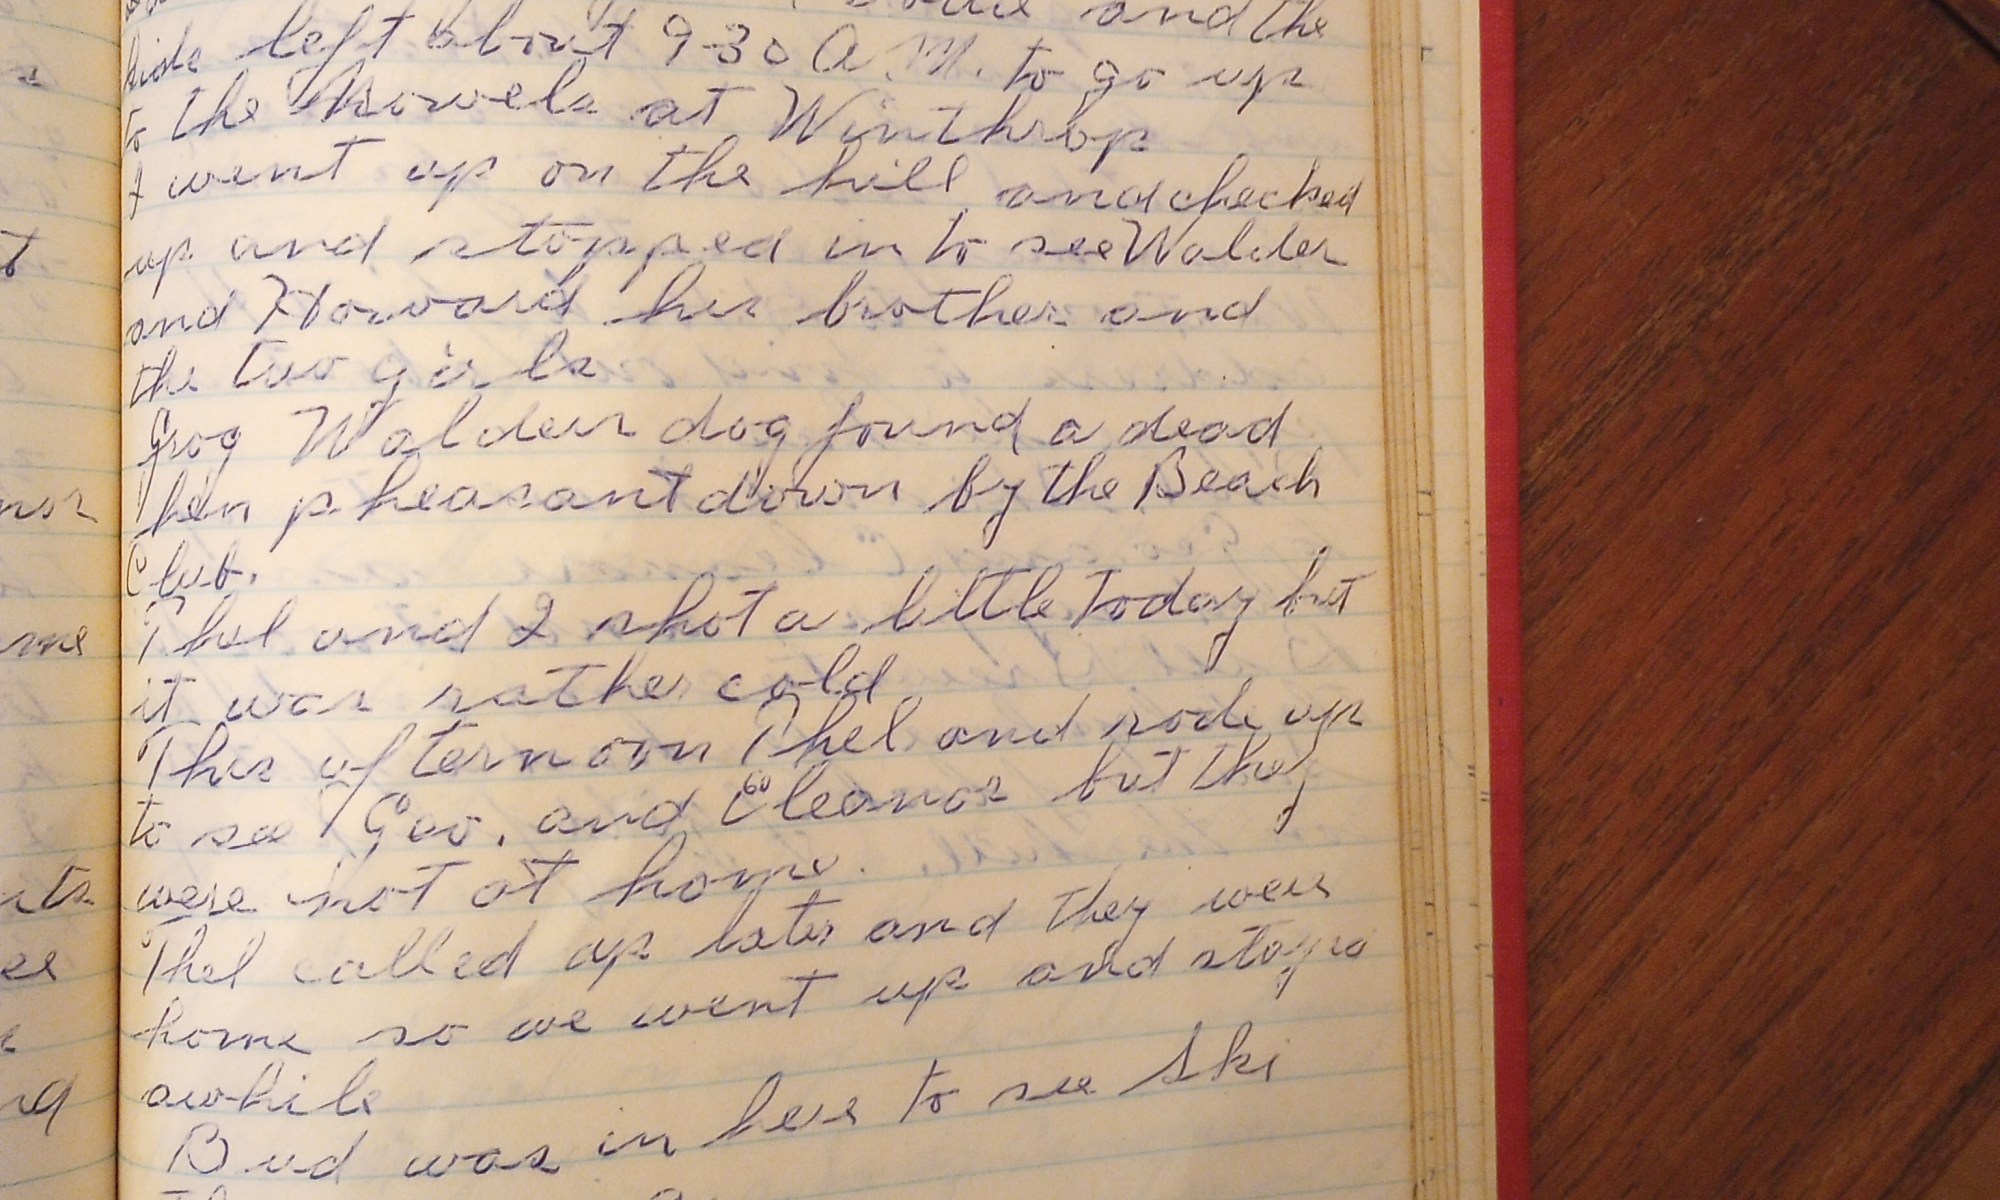 and the
kids left about 9-30 A.M. to go up
to the Howels at Winthrop
I went up on the hill and checked
up and stopped in to see Walder
and Howard his brother and
the two girls
Frog Walders dog found a dead
hen pheasant down by the Beach
Club.
Thel and I shot a little today but
it was rather cold
This afternoon Thel and rode up
to see Geo. and Eleanor but they
were not at home.
Thel called up later and they were
home so we went up and stayed
awhile
Bud was in here to see Ski